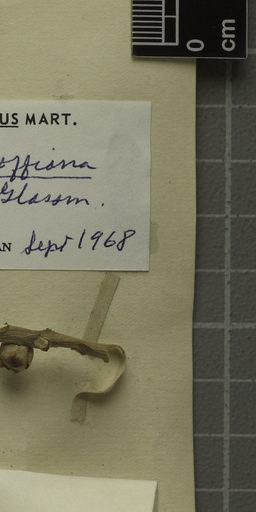 0
cm
US MART.
offiana
Glassm.
AN Sept 1968